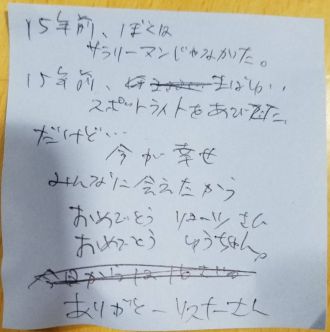 15年前、ぼくは
サラリーマンじゃなかた。
15年前、まばしい
スポットライトをあびてた、
だけど…
今が幸せ
みんなに会えたから
おめでとう さん
おめでとう ゆうちゃん。
ありがとー さん